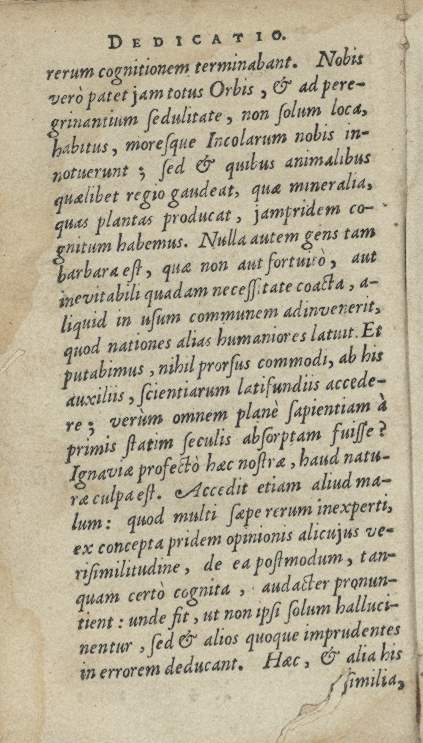 DEDICATIO.
rerum cognitionem terminabant. Nobis
verò patet jam totus Orbis, & ad pere-
grinantium sedulitate, non solum loca,
habitus, moresque Incolarum nobis in-
notuerunt; sed & quibus animalibus
quælibet regio gaudeat, quæ mineralia,
quas plantas producat, jampridem co-
gnitum habemus. Nulla autem gens tam
barbara est, quæ non aut fortuito, aut
inevitabili quadam necessitate coacta, a-
liquid in usum communem adinvenerit,
quod nationes alias humaniores latuit. Et
putabimus, nihil prorsus commodi, ab his
auxiliis, scientiarum latifundiis accede-
re; verùm omnem planè sapientiam à
primis statim seculis absorptam fuisse?
Ignaviæ profectò hæc nostræ, haud natu-
ræ culpa est. Accedit etiam aliud ma-
lum: quod multi sæpe rerum inexperti,
ex concepta pridem opinionis alicujus ve-
risimilitudine, de ea postmodum, tan-
quam certò cognita, audacter pronun-
tient: unde fit, ut non ipsi solum halluci-
nentur, sed & alios quoque imprudentes
in errorem deducant. Hæc, & alia his
similia,